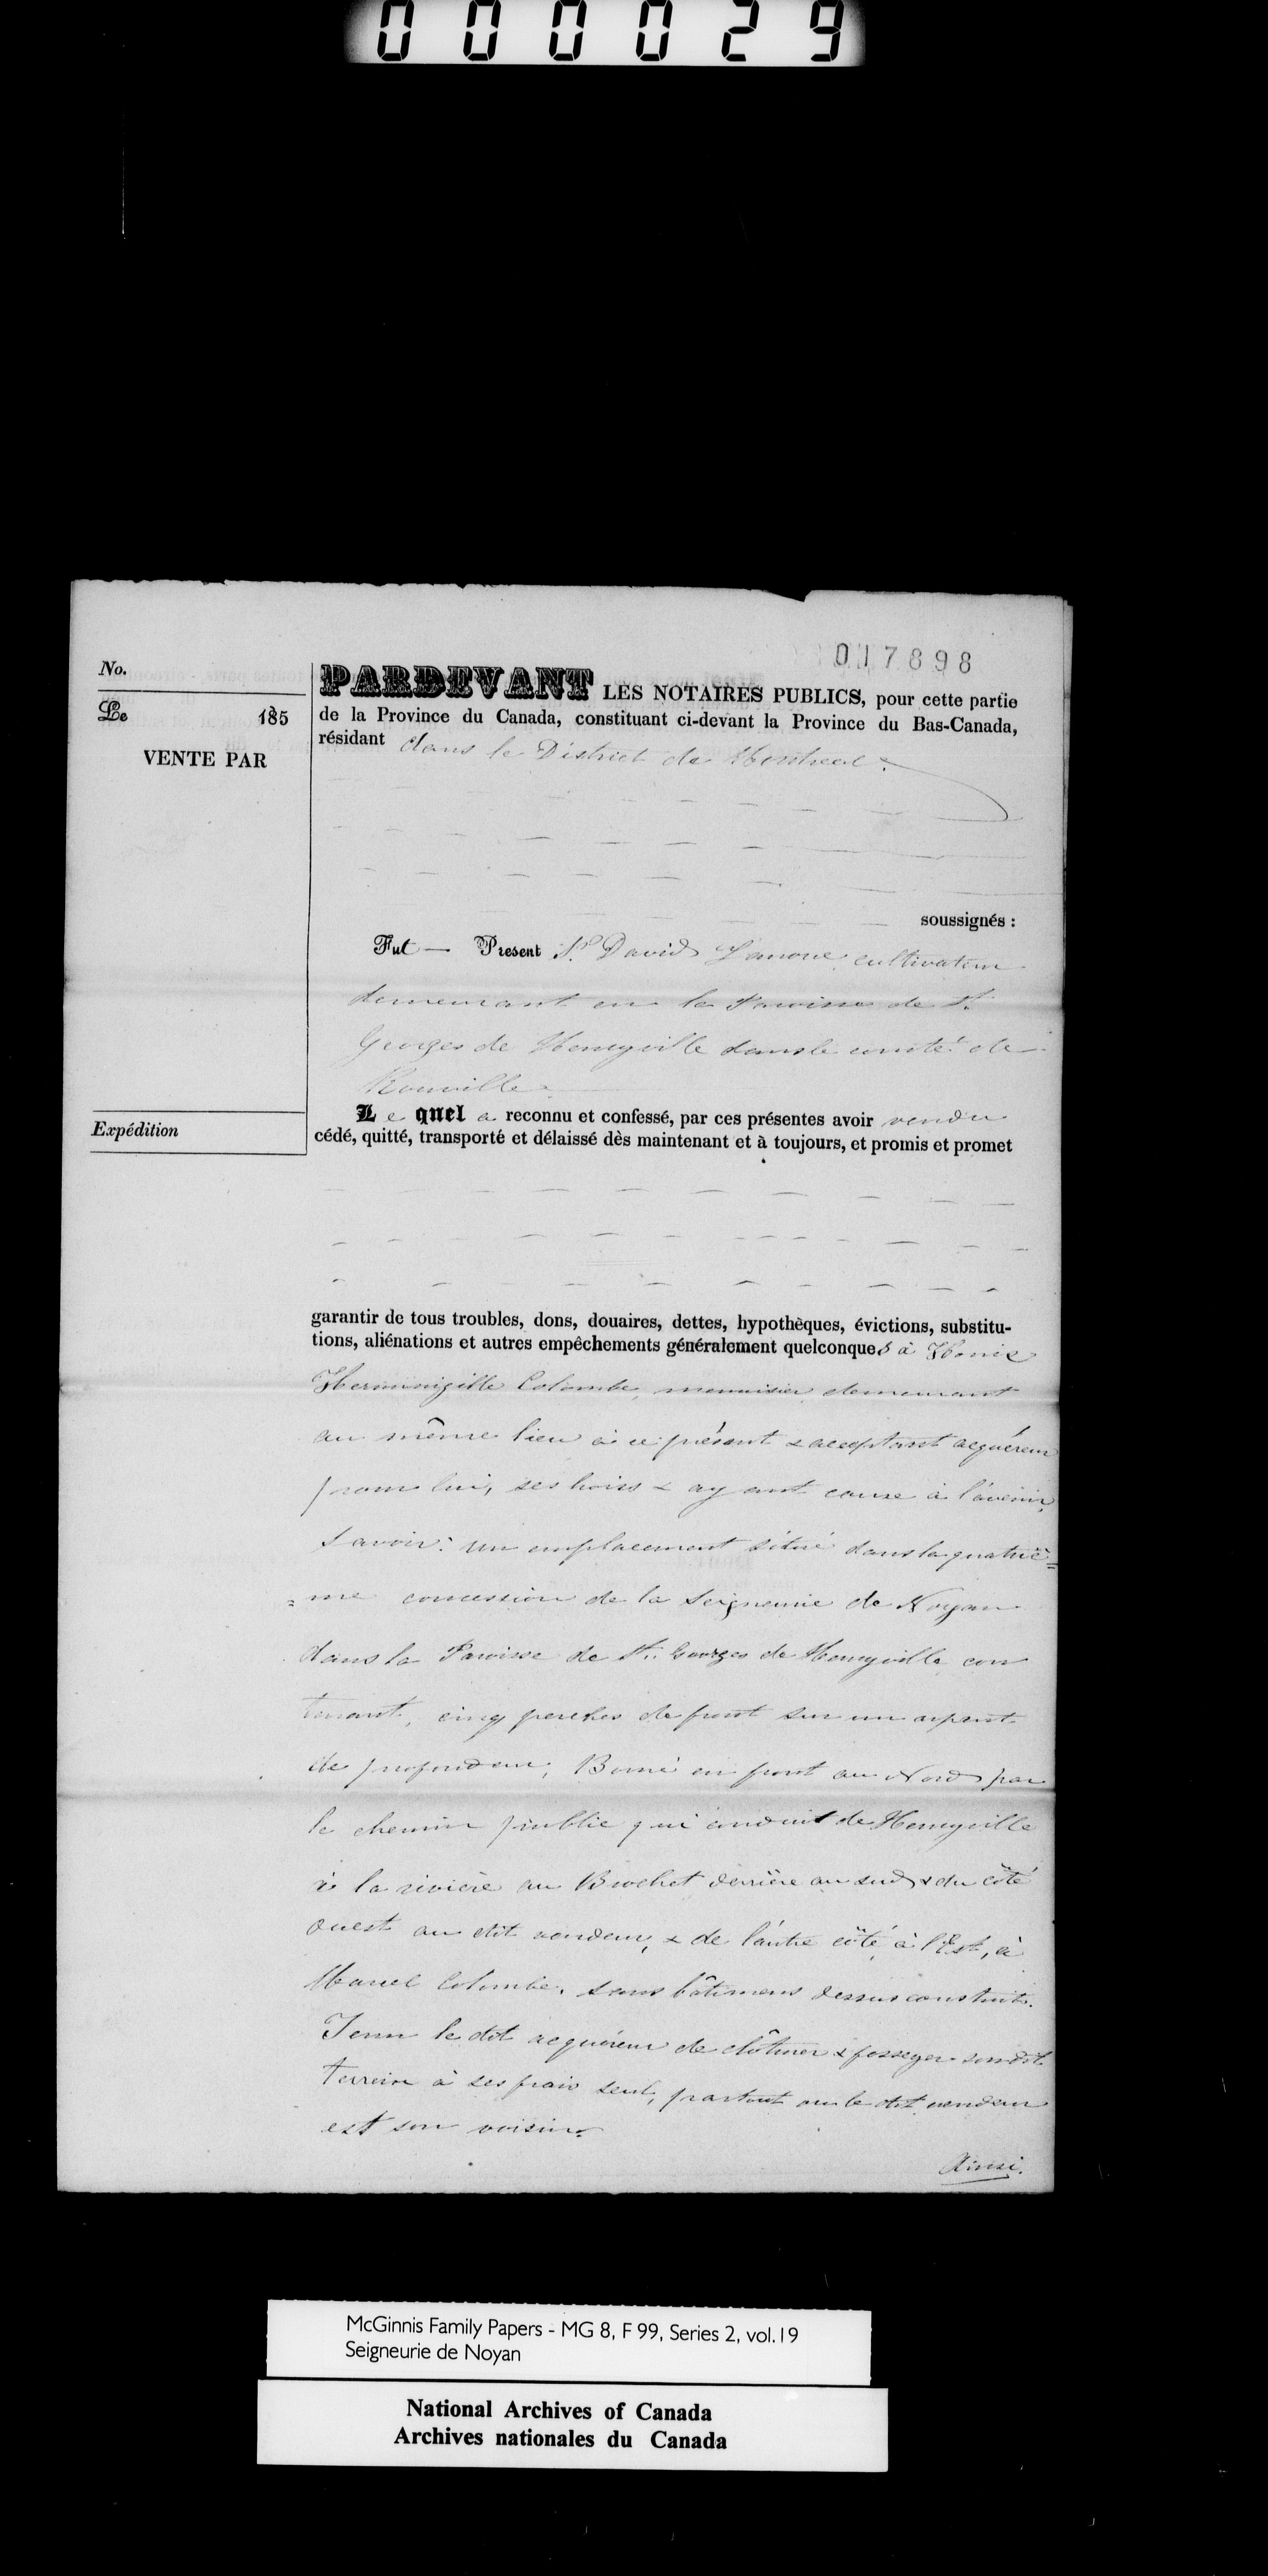 000029
017898
No.
Le 185
VENTE PAR
Expédition
PARDEVANT LES NOTAIRES PUBLICS, pour cette partie
de la Province du Canada, constituant ci-devant la Province du Bas-Canada,
résidant dans le District de Montreal.
soussignés :
Fut — Present Sr. David Lanoue cultivateur
demeurant en la Paroisse de St.
Georges de Henryville dans le comté de
Rouville
Le quel a reconnu et confessé, par ces présentes avoir vendu
cédé, quitté, transporté et délaissé dès maintenant et à toujours, et promis et promet
garantir de tous troubles, dons, douaires, dettes, hypothèques, évictions, substitu-
tions, aliénations et autres empêchements généralement quelconques à
Colombe, menuisier demeurant
au même lieu à ce présent & acceptant acquéreur
pour lui, ses hoirs & ayant cause à l'avenir,
Savoir: un emplacement situé dans la quatriè=
=me concession de la Seigneurie de Noyan
dans la Paroisse de St. Georges de Henryville con
tenant, cinq perches de front sur un arpent
de profondeur, Borné en front au Nord par
le chemin public qui conduit de Henryville
à la rivière au Brochet derrière au sud & du côté
ouest au dit vendeur, & de l'autre côté à l'Est, à
Colombe. sans bâtimens dessus construit.
Tenu le dit acquéreur de clôturer & fosseyer son dit
Terrein à ses frais seul, partout ou le dit vendeur
est son voisin.
Ainsi.
McGinnis Family Papers - MG 8, F 99, Series 2, vol.19
Seigneurie de Noyan
National Archives of Canada
Archives nationales du Canada